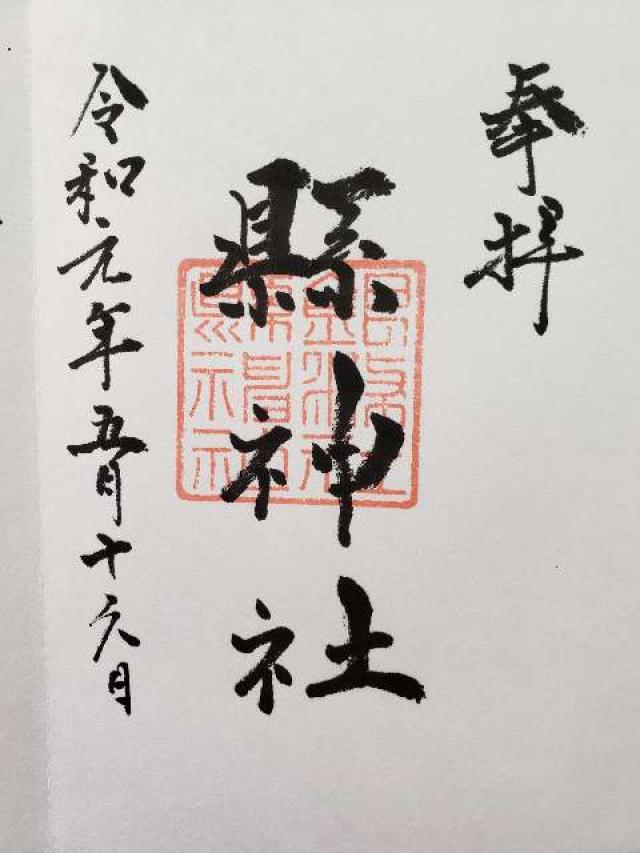 奉拝
縣神社
令和元年五月十六日